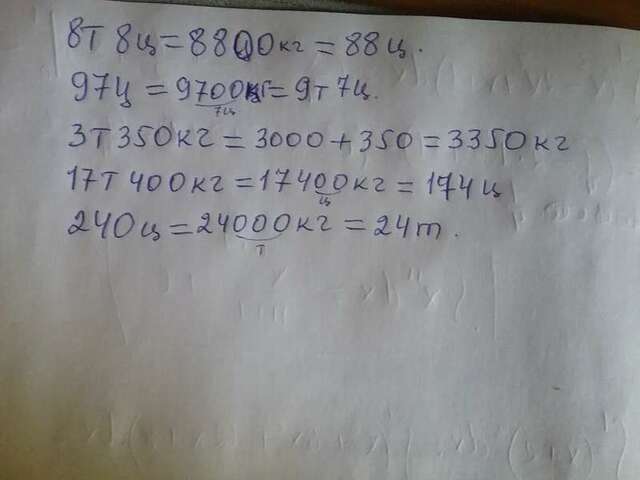 8т 8ц = 8800кг = 88ц.
97ц = 9700кг = 9т 7ц.
7ц
3т 350кг = 3000 + 350 = 3350кг
17т 400кг = 17400кг = 174ц
ц
240ц = 24000кг = 24т.
т